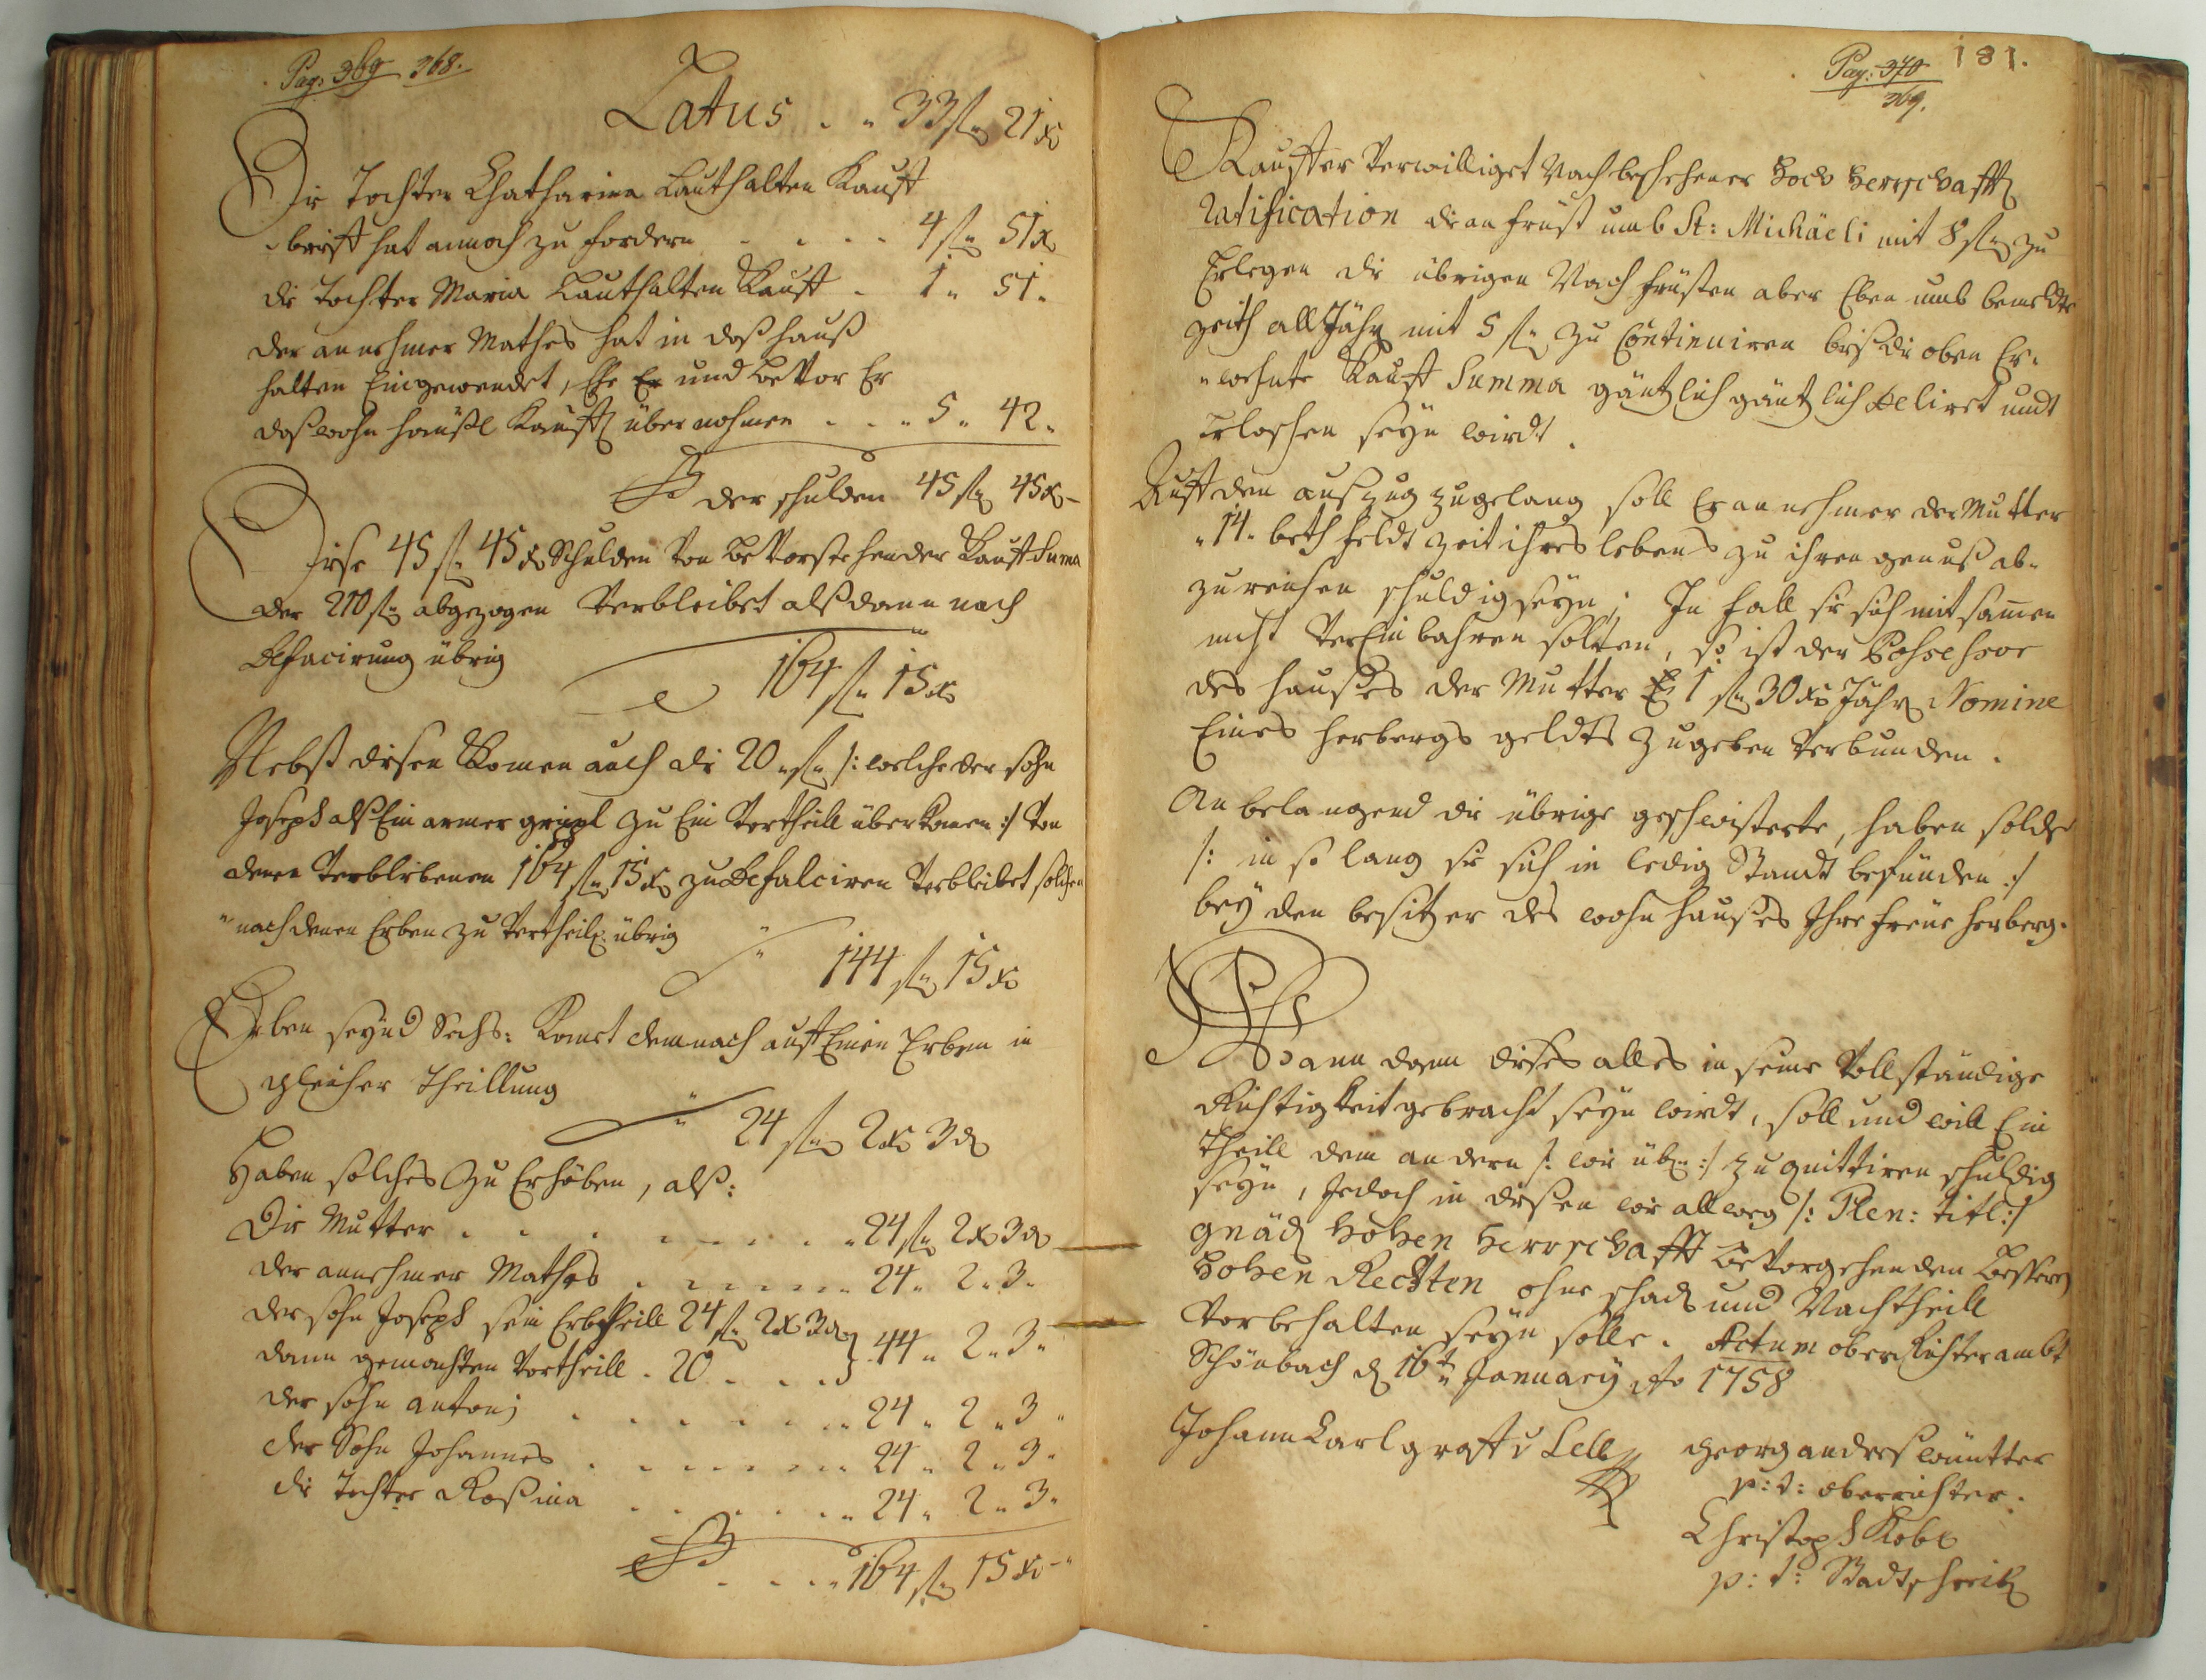 Pag: 369 368.
Latus . . 33 fl 21 x
Die Tochter Chatharina lauth alten Kauff
brieff hat annoch zu fordern . . . . 4 fl 51 x
die Tochter Maria lauth alten Kauff . 1 " 51 "
der annehmer Mathes hat in daß hauß
halten Eingewendet, Ehe Er und bevor Er
daß wohn häußl Kauff übernohmen . . . 5 " 42 "
der schulden 45 fl 45 x
Diese 45 fl 45 x Schulden von bevorstehender Kauff Suma
der 210 fl abgezogen Verbleibet alßdann nach
übrig
164 fl 15 x
Nebst diesen Komen auch die 20 fl /: welche der sohn
Joseph alß Ein armer zu Ein Vortheill überkomen :/ von
denen verblibenen 164 fl 15 x zu defalciren Verbleibet solchem
nach denen Erben zu Vertheil: übrig
144 fl 15 x
Erben seynd Sechs: Komet demnach auff Einen Erben in
gleicher Theillung
24 fl 2 x 3 d
Haben solches zu Erhöben, alß:
Die Mutter . . . . . . . 24 fl 2 x 3 d
der annehmer Mathes . . . . . . 24 " 2 " 3 "
der sohn Joseph sein Erbtheill 24 fl 2 x 3 d } 44 " 2 " 3 "
dann gemachten Vortheill . 20 . . .
der sohn Antoni . . . . . . . 24 " 2 " 3 "
der Sohn Johannes . . . . . . . 24 " 2 " 3 "
die Tochter Roßina . . . . . . 24 " 2 " 3 "
. . . . 164 fl 15 x
Pag: 370 181.
369.
Kauffer Verwilliget Nach beschehener Hoch Herrschafft
Ratification die anfrüst umb St: Michäeli mit 8 fl zu
Erlegen die übrigen Nachfrüsten aber Eben umb bemeldte
zeith all Jährl mit 5 fl zu Continuiren biß die oben Er-
wehnte Kauff Summa gäntzlich gäntzlich deliret undt
Erloschen seyn wirdt.
Auff den außzug zugelang soll Er annehmer der Mutter
14 beth feldt zeit ihres lebens zu ihren genuß ab-
zureichen schuldig seyn; In fall sie sich mitsamen
nicht Vereinbahren solten, so ist der Possessor
des haußes der Mutter 1 fl 30 x Jährl Nomine
Eines herbergs geldts zu geben verbunden.
Anbelangend die übrige geschwisterte, haben solche
/: in so lang sie sich in ledig Standt befünden :/
bey den besitzer des wohn haußes Ihre freüe herberg.
Wann dann dießes alles in seine Vollständige
Richtigkeit gebracht seyn wirdt, soll und will Ein
Theill dem andern /: wie übl: :/ zu quittiren schuldig
seyn, Jedoch in dießen wie allweg /: Plen: titl: :/
gnäd Hohen Herrschafft bevorgehenden besseren
Hohen Rechten ohne schad und Nachtheill
Vorbehalten seyn solle. Actum ober Richterambt
Schönbach d 16t January Ao 1758
Johann Carl
georg anders
p: t: oberrichter.
Christoph Kobl
p: t: Stadtschreib